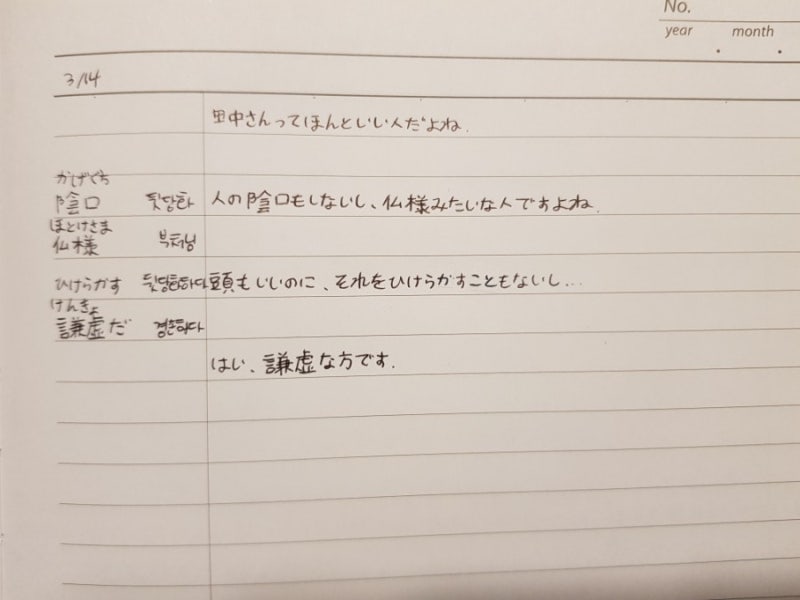 No.
year month
3/14
田中さんってほんといい人だよね.
かげぐち
陰口 뒷담화 人の陰口もしないし、仏様みたいな人ですよね.
ほとけさま
仏様 부처님
ひけらかす 頭もいいのに、それをひけらかすこともないし...
けんきょ
謙虚だ 겸손하다
はい、謙虚な方です.